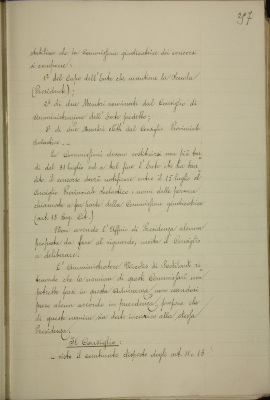 297
stabilisce che la Commissione giudicatrice dei concorsi
si compone:
1° del Capo dell'Ente che mantiene la Scuola
(Presidente);
2° di due Membri nominati dal Consiglio di
Amministrazione dell'Ente predetto;
3° di due Membri eletti dal Consiglio Provinciale
Scolastico. -
La Commissione deve costituirsi non più tar-
di del 31 luglio ed a tal fine l'Ente che ha ban-
dito il concorso dovrà notificare entro il 15 luglio al
Consiglio Provinciale Scolastico i nomi delle persone
chiamate a far parte della Commissione giudicatrice
(art. 13 Reg. cit.)
Non avendo l'Ufficio di Presidenza alcuna
proposta da fare al riguardo, invita il Consiglio
a deliberare.
L'Amministratore ri-
tenendo che la nomina di Commissioni non
potrebbe farsi in questa Adunanza, non essendosi
presi alcun accordo in precedenza, propone che
di queste nomine sia dato incarico alla stessa
Presidenza.
Il Consiglio:
- visto il combinato disposto degli art. 11 e 13